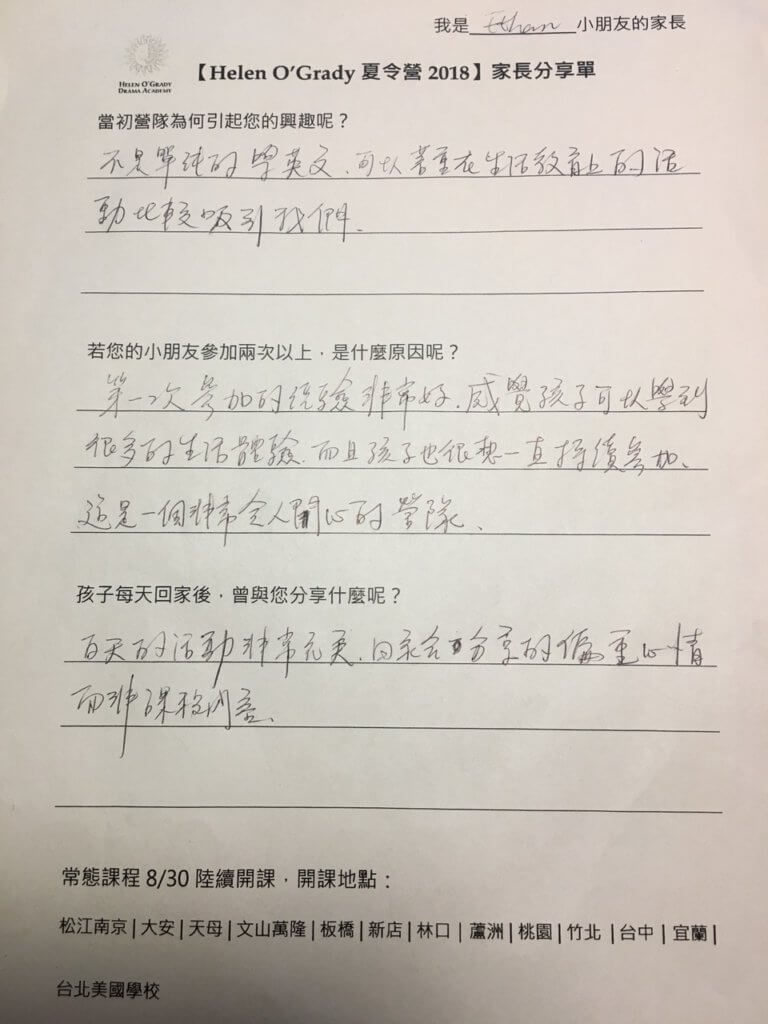 我是 Ethan 小朋友的家長
HELEN O'GRADY
DRAMA ACADEMY
【Helen O'Grady 夏令營 2018】家長分享單
當初營隊為何引起您的興趣呢？
不是單純的學英文、可以著重在生活教育上的活
動比較吸引我們、
若您的小朋友參加兩次以上，是什麼原因呢？
第一次參加的經驗非常好、感覺孩子可以學到
很多的生活體驗、而且孩子也很想一直持續參加、
這是一個非常令人開心的營隊、
孩子每天回家後，曾與您分享什麼呢？
白天的活動非常充實、回家會分享的偏重心情
而非課程內容、
常態課程 8/30 陸續開課，開課地點：
松江南京|大安|天母|文山萬隆|板橋|新店|林口|蘆洲|桃園|竹北|台中|宜蘭|
台北美國學校